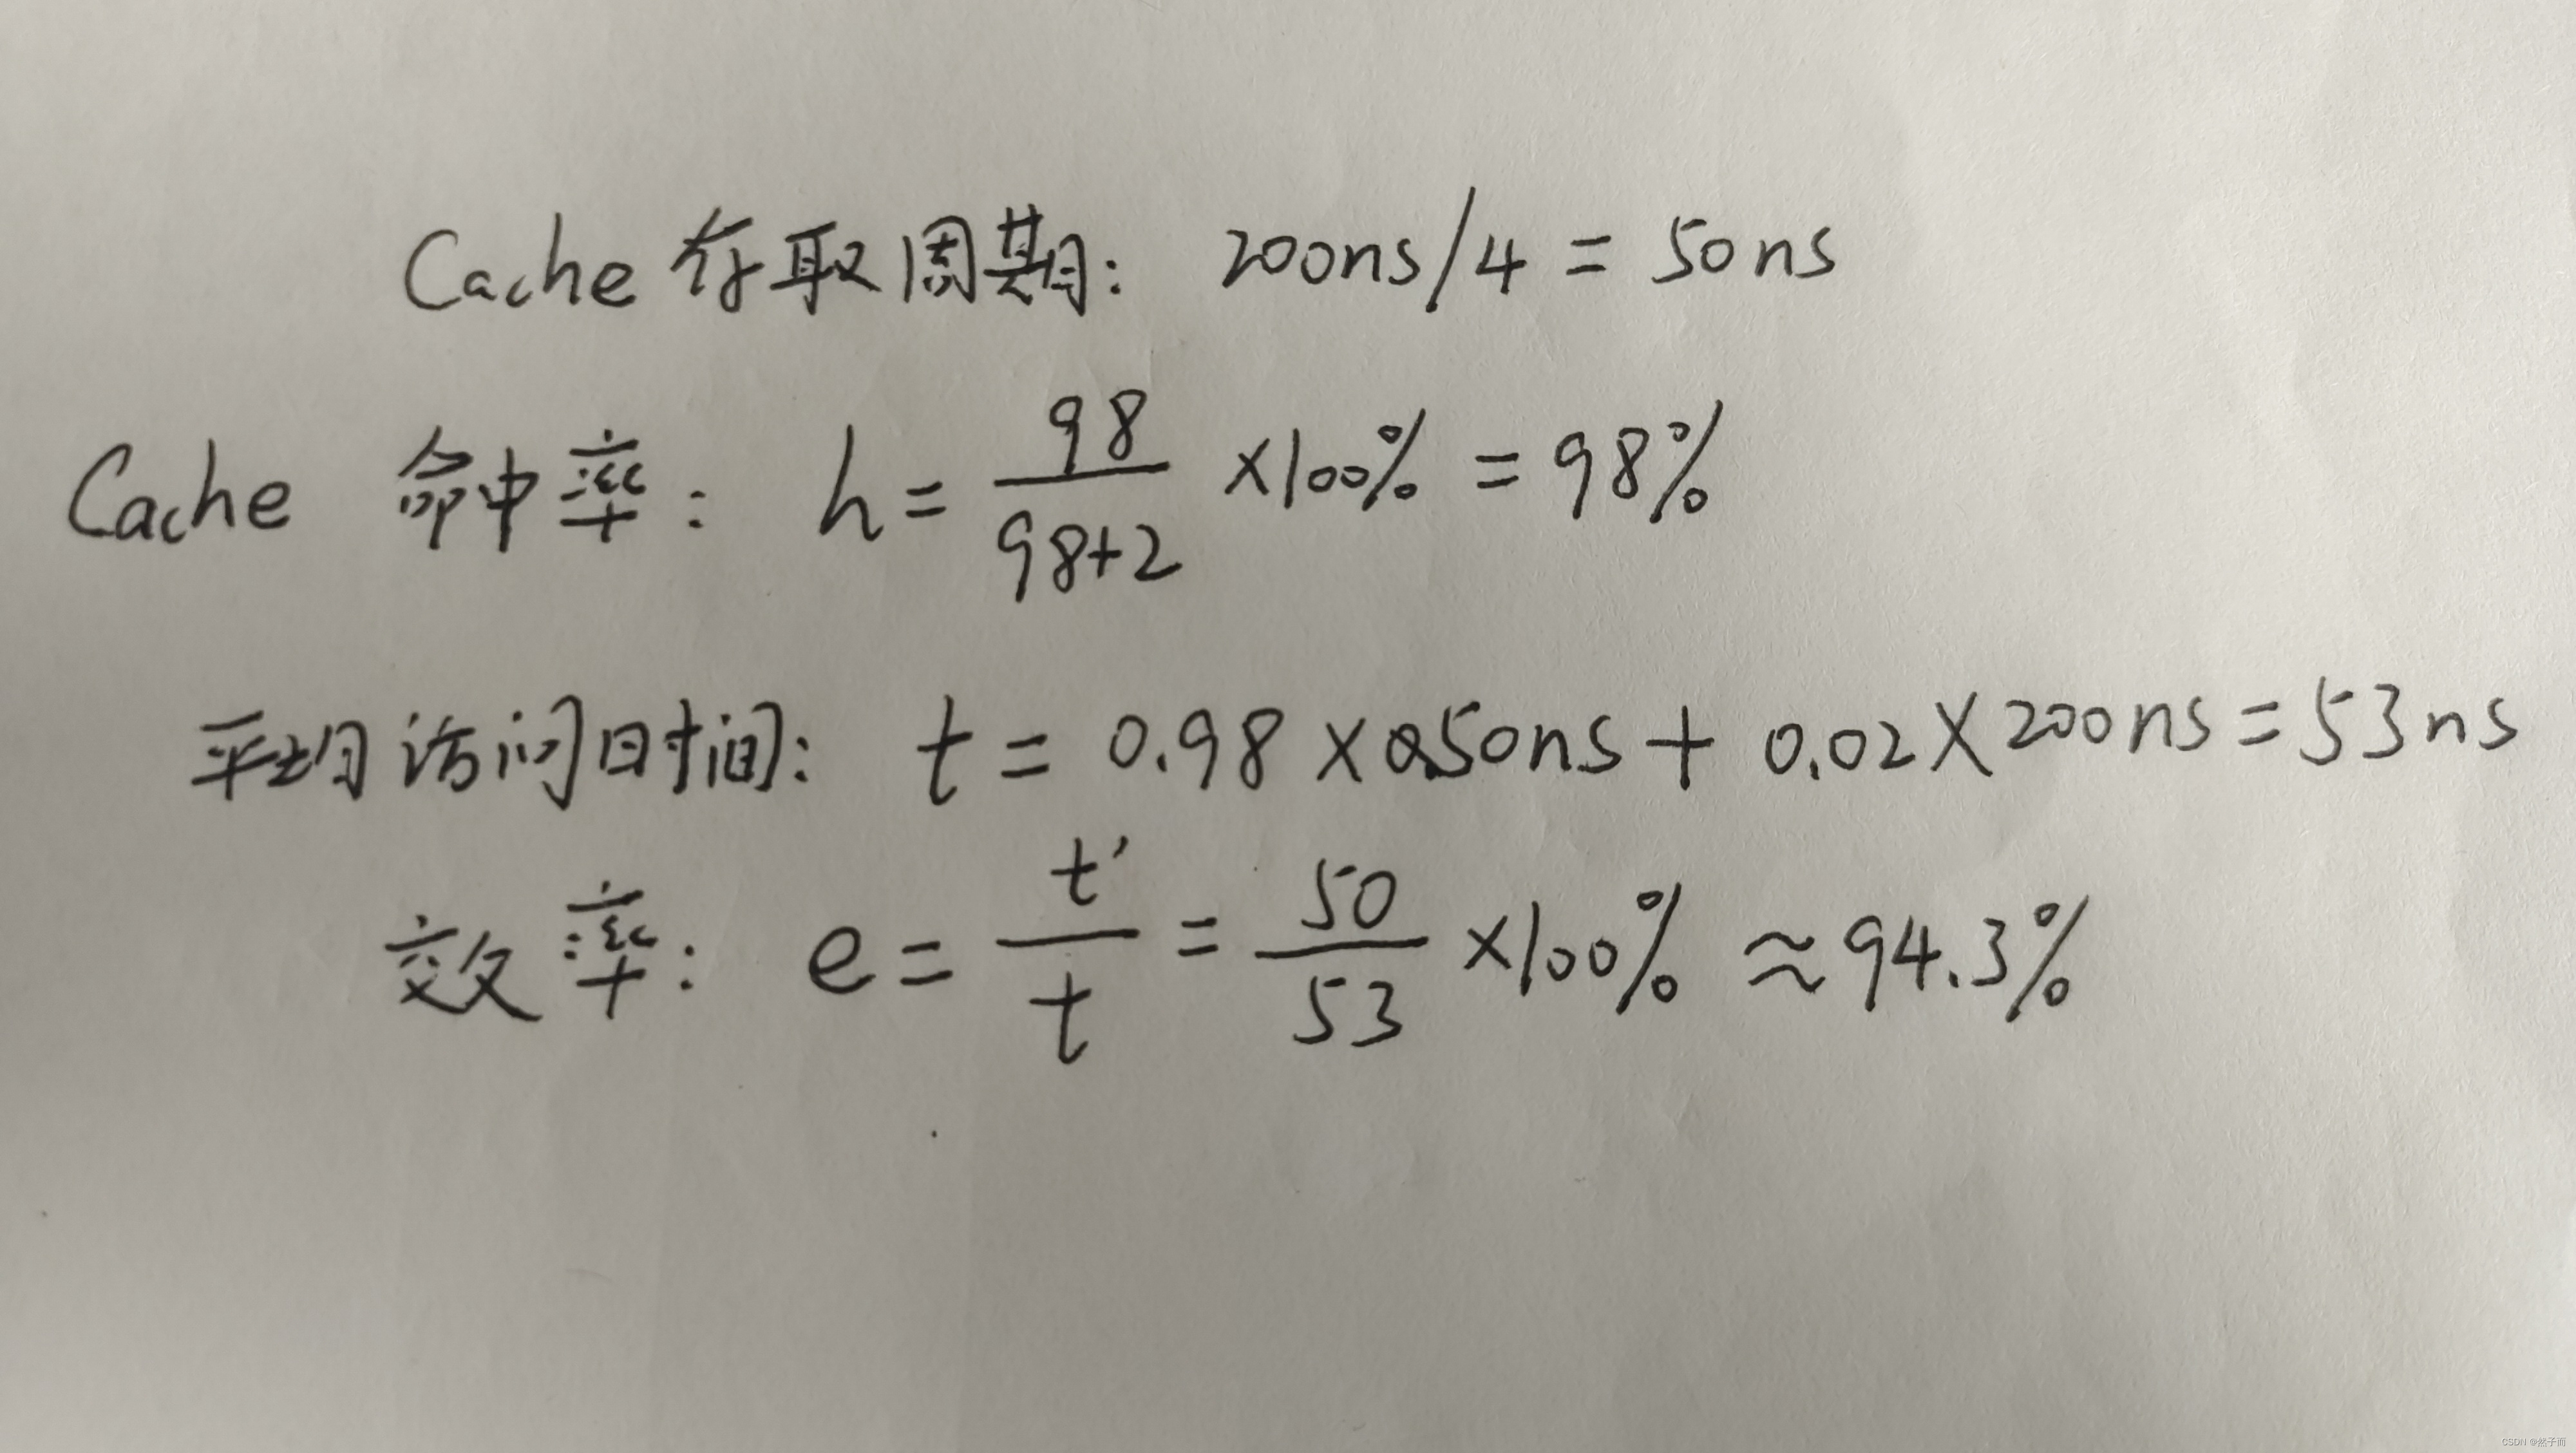 Cache 存取周期: 200ns/4 = 50ns
Cache 命中率: h = 98/(98+2) ×100% = 98%
平均访问时间: t = 0.98 × 50ns + 0.02 × 200ns = 53ns
效率: e = t'/t = 50/53 ×100% ≈ 94.3%
CSDN @然子而